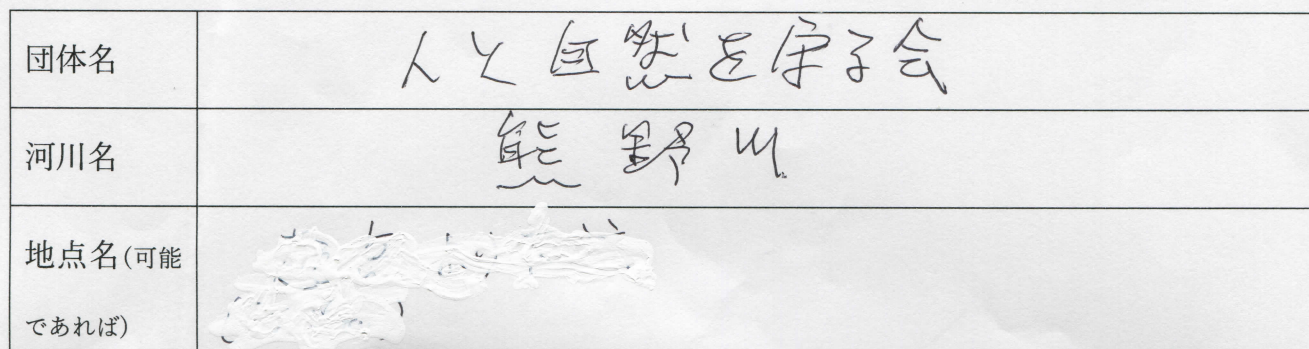 団体名 人と自然を守る会
河川名 熊野川
地点名(可能
であれば)